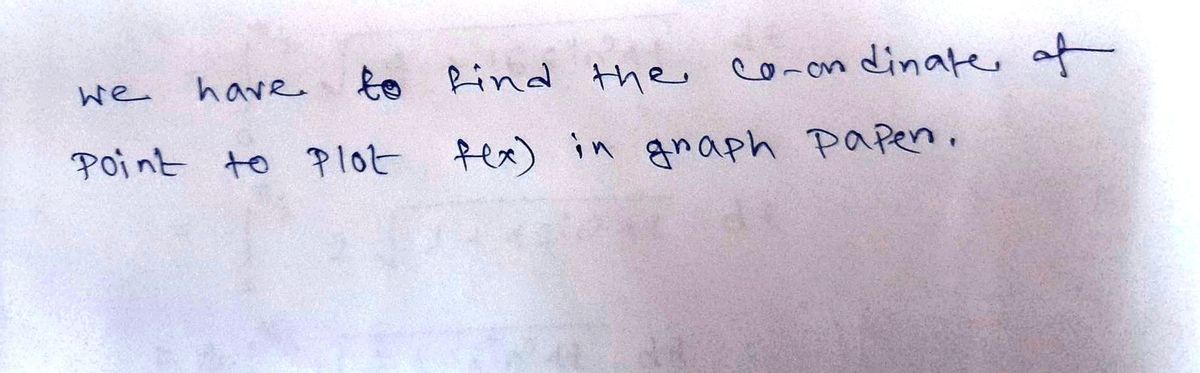 we have to find the co-ordinate of
point to plot f(x) in graph paper.